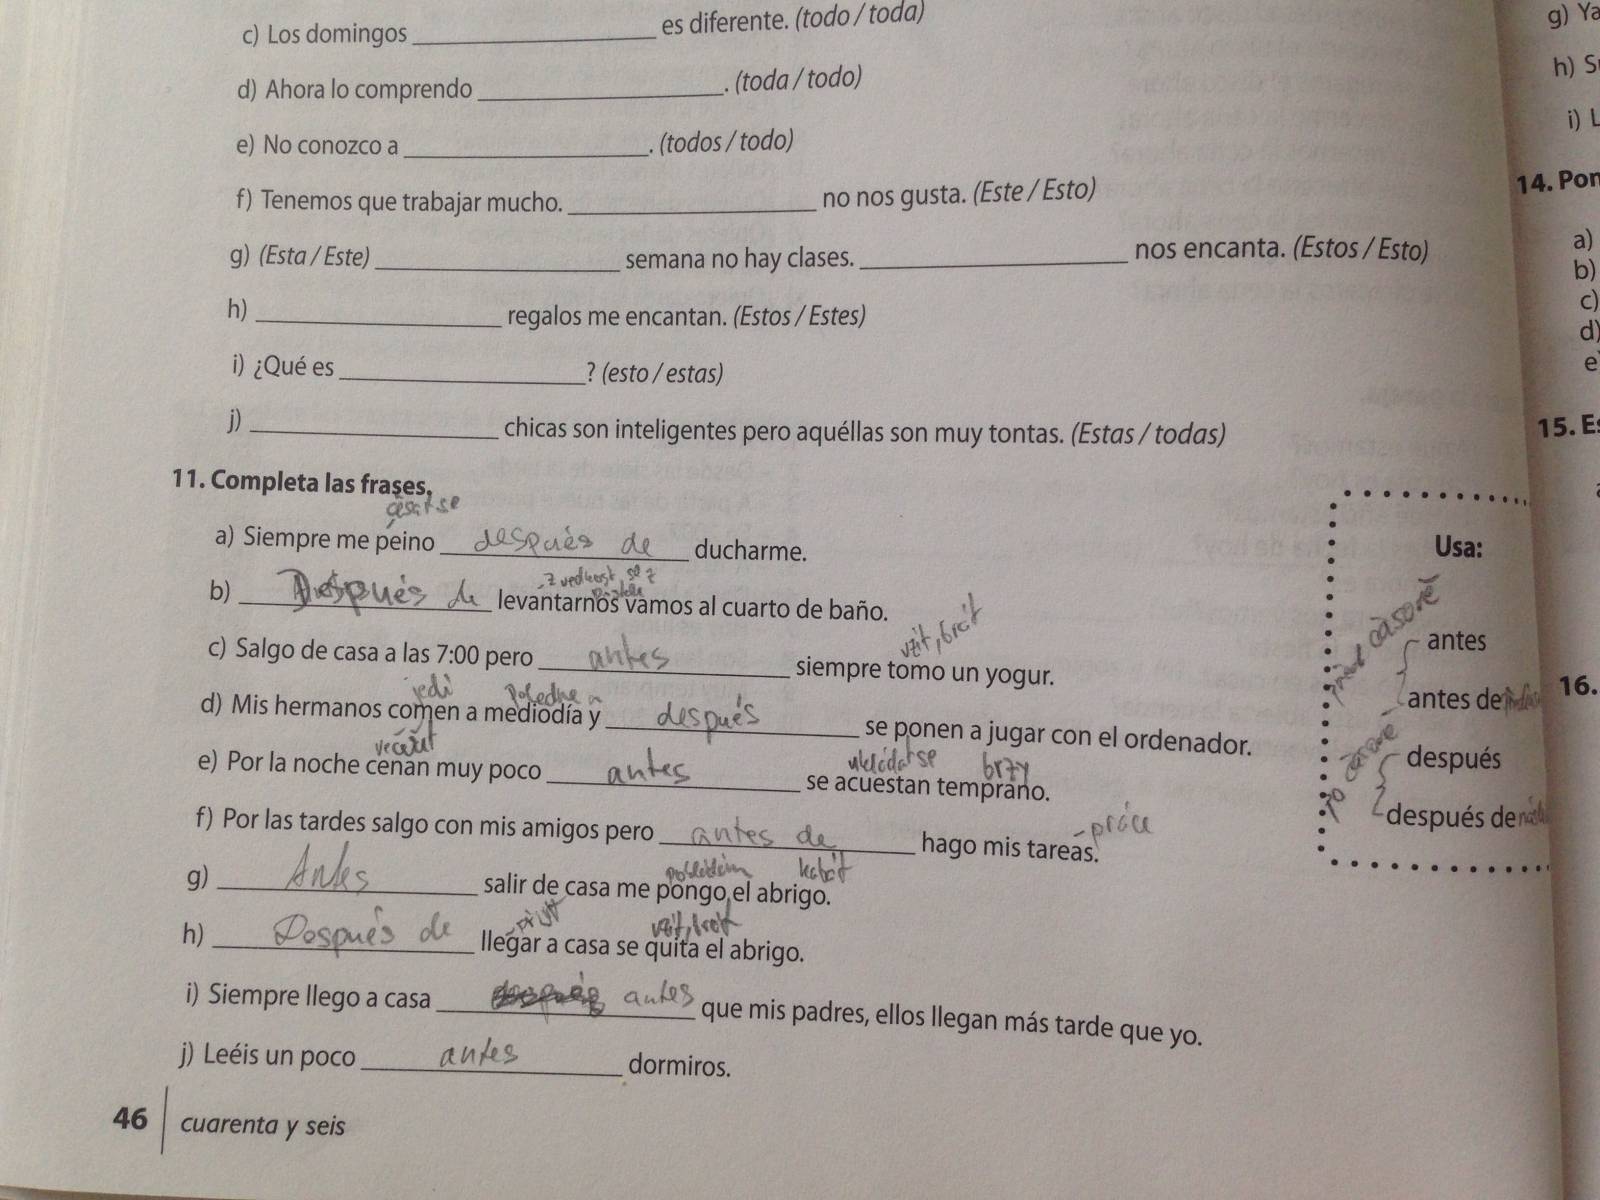 c) Los domingos ____ es diferente. (todo / toda)
d) Ahora lo comprendo ____. (toda / todo)
e) No conozco a ____. (todos / todo)
f) Tenemos que trabajar mucho. ____ no nos gusta. (Este / Esto)
g) (Esta / Este) ____ semana no hay clases. ____ nos encanta. (Estos / Esto)
h) ____ regalos me encantan. (Estos / Estes)
i) ¿Qué es ____? (esto / estas)
j) ____ chicas son inteligentes pero aquéllas son muy tontas. (Estas / todas)
11. Completa las frases.
česat se
a) Siempre me peino después de ducharme.
b) Después de levantarnos vamos al cuarto de baño.
vzít, brát
c) Salgo de casa a las 7:00 pero antes siempre tomo un yogur.
jedí
d) Mis hermanos comen a mediodía y después se ponen a jugar con el ordenador.
ukládat se brzy
e) Por la noche cenan muy poco antes se acuestan temprano.
f) Por las tardes salgo con mis amigos pero antes de hago mis tareas.
- práce
kabát
g) Antes salir de casa me pongo el abrigo.
vzít, brát
h) Después de llegar a casa se quita el abrigo.
i) Siempre llego a casa antes que mis padres, ellos llegan más tarde que yo.
j) Leéis un poco antes dormiros.
46 cuarenta y seis
Usa:
antes
antes de
después
después de
g) Ya
h)
i) L
14. Pon
a)
b)
c)
d)
e
15. Es
16.